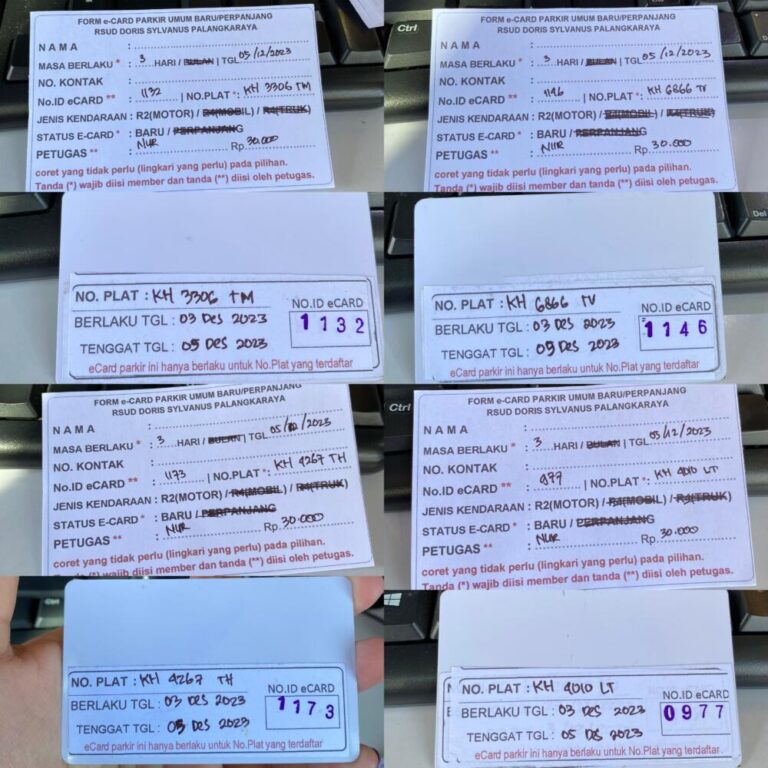 FORM e-CARD PARKIR UMUM BARU/PERPANJANG
RSUD DORIS SYLVANUS PALANGKARAYA
NAMA :
MASA BERLAKU * : 3 HARI / BULAN | TGL 05/12/2023
NO. KONTAK :
No.ID eCARD ** : 1132 | NO.PLAT *: KH 3306 TM
JENIS KENDARAAN : R2(MOTOR) / R4(MOBIL) / R4(TRUK)
STATUS E-CARD * : BARU / PERPANJANG
PETUGAS ** : NUR Rp. 30.000
coret yang tidak perlu (lingkari yang perlu) pada pilihan.
Tanda (*) wajib diisi member dan tanda (**) diisi oleh petugas.
Ctrl
FORM e-CARD PARKIR UMUM BARU/PERPANJANG
RSUD DORIS SYLVANUS PALANGKARAYA
NAMA :
MASA BERLAKU * : 3 HARI / BULAN | TGL 05/12/2023
NO. KONTAK :
No.ID eCARD ** : 1146 | NO.PLAT *: KH 6866 TV
JENIS KENDARAAN : R2(MOTOR) / R4(MOBIL) / R4(TRUK)
STATUS E-CARD * : BARU / PERPANJANG
PETUGAS ** : NUR Rp. 30.000
coret yang tidak perlu (lingkari yang perlu) pada pilihan.
Tanda (*) wajib diisi member dan tanda (**) diisi oleh petugas.
NO. PLAT : KH 3306 TM
BERLAKU TGL : 03 DES 2023
TENGGAT TGL : 05 DES 2023
NO.ID eCARD
1132
eCard parkir ini hanya berlaku untuk No.Plat yang terdaftar
Del
NO. PLAT : KH 6866 TV
BERLAKU TGL : 03 DES 2023
TENGGAT TGL : 05 DES 2023
NO.ID eCARD
1146
eCard parkir ini hanya berlaku untuk No.Plat yang terdaftar
FORM e-CARD PARKIR UMUM BARU/PERPANJANG
RSUD DORIS SYLVANUS PALANGKARAYA
NAMA :
MASA BERLAKU * : 3 HARI / BULAN | TGL 05/12/2023
NO. KONTAK :
No.ID eCARD ** : 1173 | NO.PLAT *: KH 4267 TH
JENIS KENDARAAN : R2(MOTOR) / R4(MOBIL) / R4(TRUK)
STATUS E-CARD * : BARU / PERPANJANG
PETUGAS ** : NUR Rp. 30.000
coret yang tidak perlu (lingkari yang perlu) pada pilihan.
Tanda (*) wajib diisi member dan tanda (**) diisi oleh petugas.
Ctrl
FORM e-CARD PARKIR UMUM BARU/PERPANJANG
RSUD DORIS SYLVANUS PALANGKARAYA
NAMA :
MASA BERLAKU * : 3 HARI / BULAN | TGL 05/12/2023
NO. KONTAK :
No.ID eCARD ** : 977 | NO.PLAT *: KH 4010 LT
JENIS KENDARAAN : R2(MOTOR) / R4(MOBIL) / R4(TRUK)
STATUS E-CARD * : BARU / PERPANJANG
PETUGAS ** : NUR Rp. 30.000
coret yang tidak perlu (lingkari yang perlu) pada pilihan.
Tanda (*) wajib diisi member dan tanda (**) diisi oleh petugas.
NO. PLAT : KH 4267 TH
BERLAKU TGL : 03 DES 2023
TENGGAT TGL : 05 DES 2023
NO.ID eCARD
1173
eCard parkir ini hanya berlaku untuk No.Plat yang terdaftar
NO. PLAT : KH 4010 LT
BERLAKU TGL : 03 DES 2023
TENGGAT TGL : 05 DES 2023
NO.ID eCARD
0977
eCard parkir ini hanya berlaku untuk No.Plat yang terdaftar